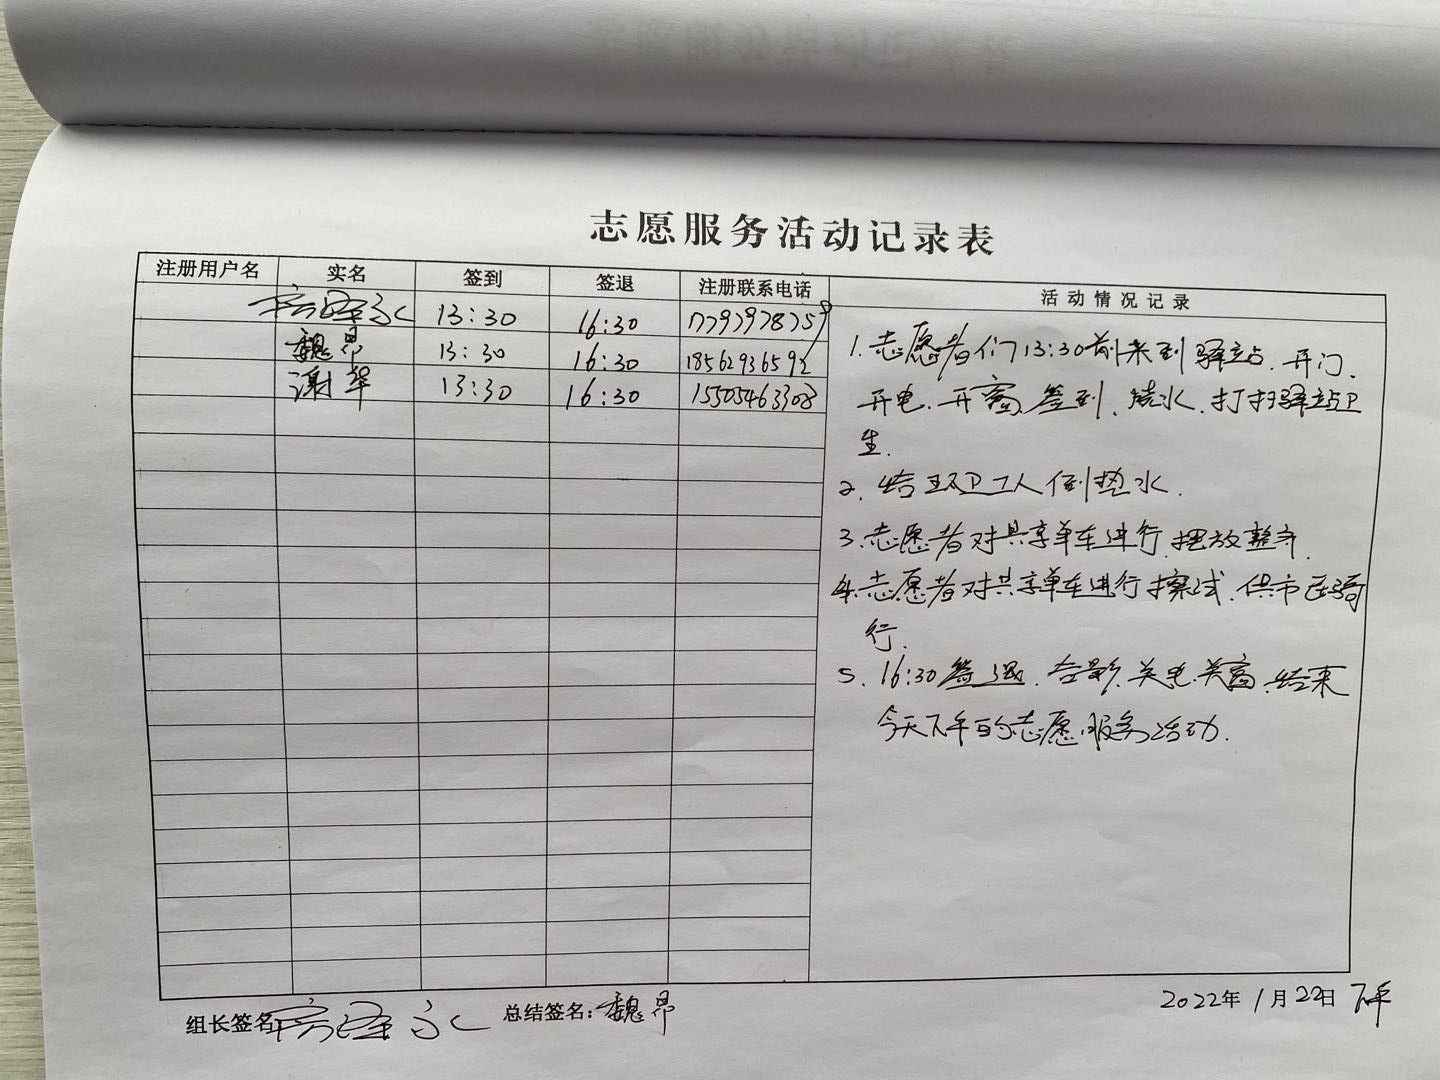 志愿服务活动记录表
注册用户名 实名 签到 签退 注册联系电话 活动情况记录
13:30 16:30
魏昂 13:30 16:30 18562936592
谢华 13:30 16:30 15505463308
1.志愿者们13:30前来到驿站.开门.
开电.开窗.签到.烧水.打扫驿站卫
生.
2.给环卫工人倒热水.
3.志愿者对共享单车进行摆放整齐.
4.志愿者对共享单车进行擦试.供市民骑
行.
5.16:30签退.合影.关电.关窗.结束
今天下午的志愿服务活动.
组长签名:
总结签名:魏昂
2022年1月22日下午